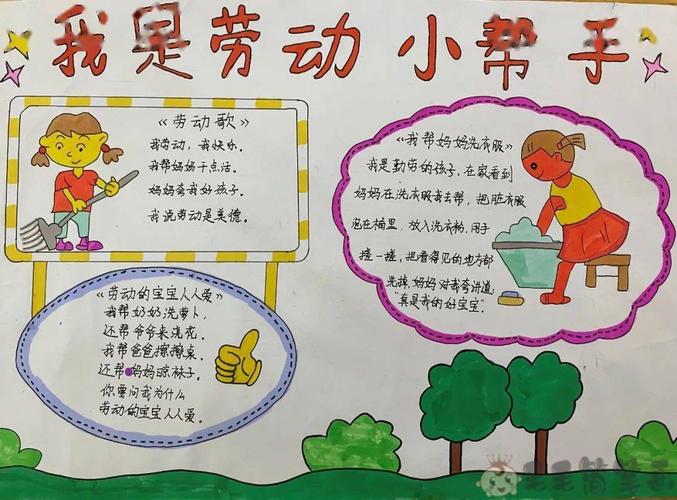 我是劳动小帮手
《劳动歌》
我劳动，我快乐。
我帮妈妈干点活。
妈妈夸我好孩子。
我说劳动是美德。
《劳动的宝宝人人爱》
我帮奶奶洗萝卜，
还帮爷爷来浇花，
我帮爸爸擦擦桌，
还帮妈妈晾袜子。
你要问我为什么
劳动的宝宝人人爱。
《我帮妈妈洗衣服》
我是勤劳的孩子，在家看到
妈妈在洗衣服我去帮，把脏衣服
泡在桶里，放入洗衣粉，用手
搓一搓，把看得见的地方都
洗掉，妈妈对我夸讲道：
“真是我的好宝宝”。